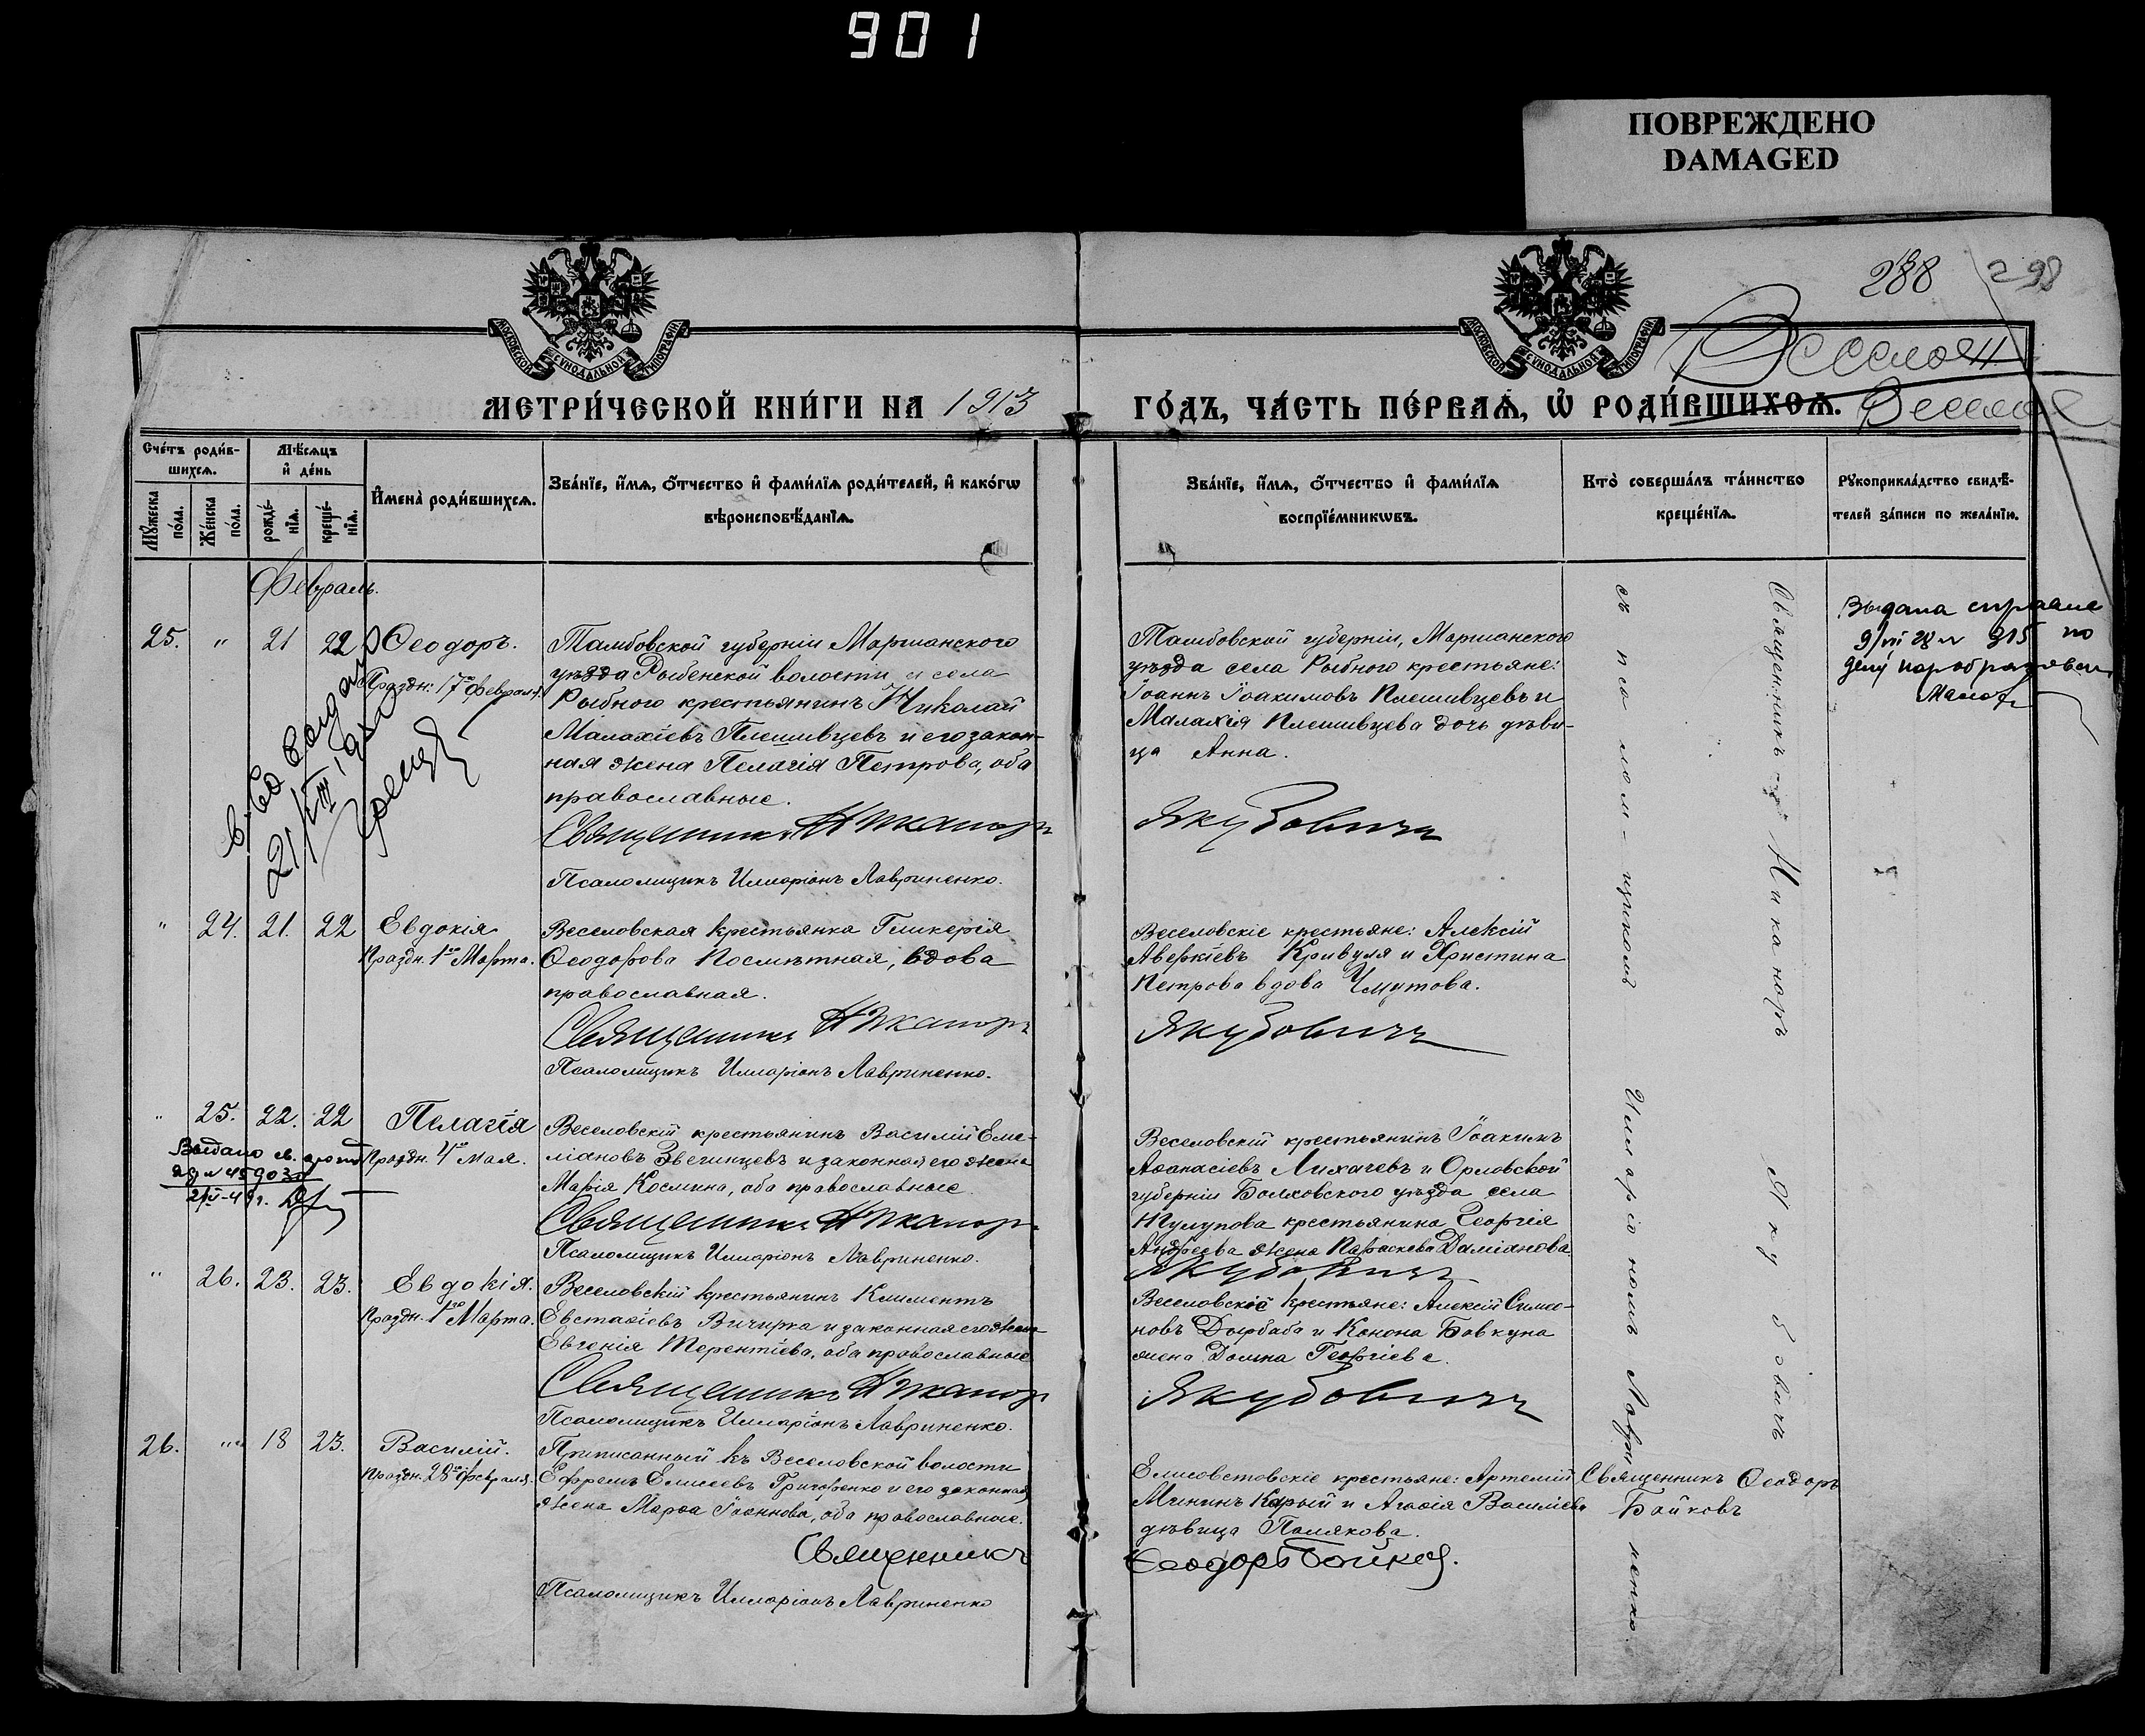 901
ПОВРЕЖДЕНО
DAMAGED
288 298
МОСКОВСКОЙ СѴНОДАЛЬНОЙ ТИПОГРАФІИ
МОСКОВСКОЙ СѴНОДАЛЬНОЙ ТИПОГРАФІИ
Веселое
МЕТРИ́ЧЕСКОЙ КНИ́ГИ НА 1913
ГО́ДЪ, ЧА́СТЬ ПЕ́РВАѦ, Ѡ РОДИ́ВШИХСѦ.
Сче́тъ роди́в-
шихсѧ.
Мꙋ́жеска по́ла.
Же́нска по́ла.
Мѣ́сѧцъ
и҆ де́нь
рожде́-
нїѧ.
креще́-
нїѧ.
И҆мена̀ роди́вшихсѧ.
Зва́нїе, и҆́мѧ, ѻ҆́тчество и҆ фами́лїѧ роди́телей, и҆ како́гѡ
вѣроисповѣ́данїѧ.
Зва́нїе, и҆́мѧ, ѻ҆́тчество и҆ фами́лїѧ
воспрїе́мникѡвъ.
Кто̀ соверша́лъ та́инство
креще́нїѧ.
Рꙋкоприкла́дство свидѣ́-
телей за́писи по жела́нїю.
Февраль.
25. " 21 22 Ѳеодоръ.
Праздн: 17го февраля.
Тамбовской губерніи Моршанскаго
уѣзда Рыбенской волости и села
Рыбного крестьянинъ Николай
Малахіевъ Плешивцевъ и его закон-
ная жена Пелагія Петрова, оба
православные.
Священникъ Никаноръ
Псаломщикъ Илларіонъ Лавриненко.
Тамбовской губерніи, Моршанскаго
уѣзда села Рыбного крестьяне:
Іоаннъ Іоакимовъ Плешивцевъ и
Малахія Плешивцева дочь дѣви-
ца Анна.
Якубовичъ
Священникъ Никаноръ Якубовичъ
съ псаломщикомъ Илларіономъ Лавриненко.
Выдана справка
315 по
делу
" 24. 21. 22 Евдокія
Праздн. 1го Марта.
Веселовская крестьянка Гликерія
Ѳеодорова Посмѣтная, вдова
православная.
Священникъ Никаноръ
Псаломщикъ Илларіонъ Лавриненко.
Веселовскіе крестьяне: Алексій
Аверкіевъ Кривуля и Христина
Петрова вдова Чмутова.
Якубовичъ
" 25. 22. 22 Пелагія
Праздн. 4го Мая.
Выдано св.
Веселовскій крестьянинъ Василій Еме-
ліановъ Звегинцевъ и законная его жена
Марія Космина, оба православные.
Священникъ Никаноръ
Псаломщикъ Илларіонъ Лавриненко.
Веселовскій крестьянинъ Іоакимъ
Аѳанасіевъ Лихачевъ и Орловской
губерніи Болховского уѣзда села
крестьянина Георгія
Андреева жена Параскева Даміанова
Якубовичъ
" 26. 23. 23. Евдокія.
Праздн. 1го Марта.
Веселовскій крестьянинъ Климентъ
Евстаѳіевъ Вичирка и законная его жена
Евгенія Терентіева, оба православные
Священникъ Никаноръ
Псаломщикъ Илларіонъ Лавриненко.
Веселовскіе крестьяне: Алексій Симео-
новъ Дырбаба и Конона Бовкуна
жена Домна Георгіева.
Якубовичъ
26. " 18 23. Василій.
Праздн. 28го февраля.
Приписанный къ Веселовской волости
Ефремъ Елисеевъ Григоренко и его законная
жена Марѳа Іоаннова, оба православные.
Священникъ
Псаломщикъ Илларіонъ Лавриненко
Елисоветовскіе крестьяне: Артемій
Мининъ Карый и Агаѳія Василіева
дѣвица Полякова.
Ѳеодоръ Бойковъ.
Священникъ Ѳеодоръ
Бойковъ